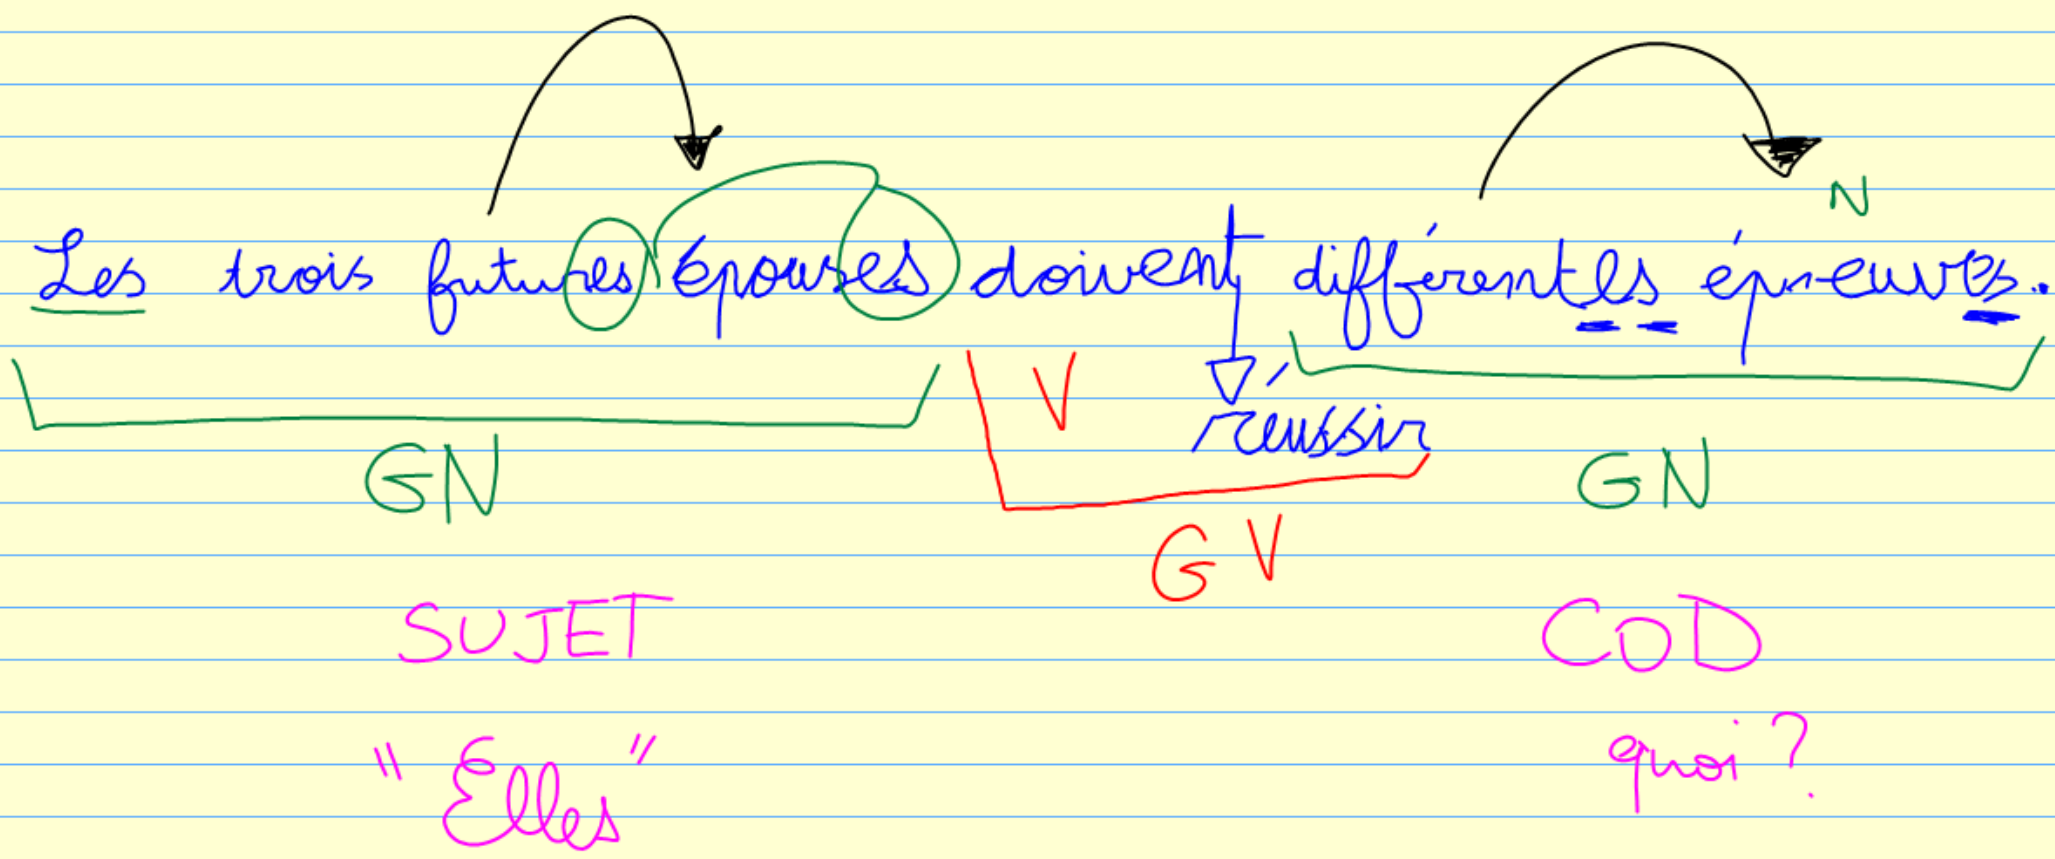 N
Les trois futures épouses doivent différentes épreuves.
V réussir
GN GN
GV
SUJET COD
quoi ?
"Elles"